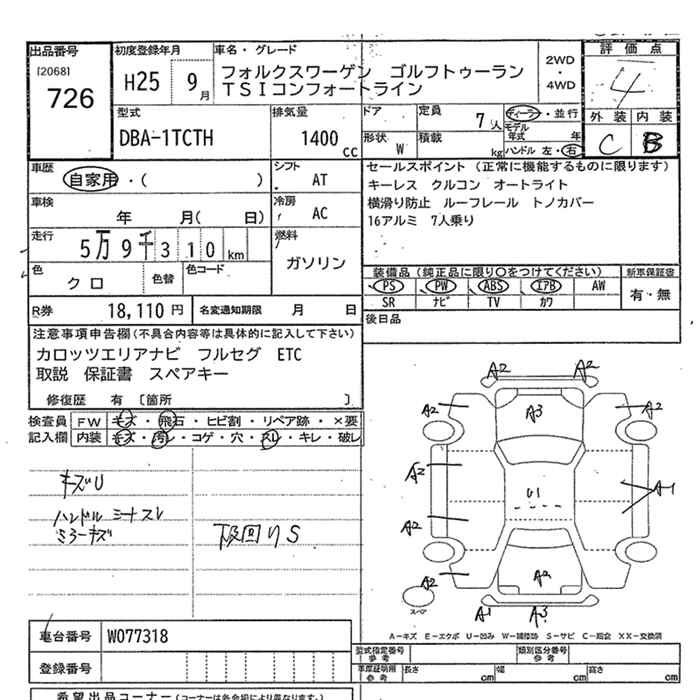 出品番号
[2068]
726
初度登録年月
H25 9月
車名・グレード
フォルクスワーゲン ゴルフトゥーラン
TSIコンフォートライン
2WD
・
4WD
評価点
4
外装 内装
C B
型式
DBA-1TCTH
排気量
1400
cc
ドア
定員
7人
形状 W
積載
kg
ディーラー・並行
モデル
年式 年
ハンドル 左・右
車歴
自家用・( )
シフト
AT
車検
年 月( 日)
冷房
AC
走行
5万9千310km
燃料
ガソリン
色
クロ
色替
色コード
R券 18,110円
名変通知期限 月 日
セールスポイント (正常に機能するものに限ります)
キーレス クルコン オートライト
横滑り防止 ルーフレール トノカバー
16アルミ 7人乗り
装備品(純正品に限り〇をつけてください)
新車保証書
PS PW ABS エアB AW
SR ナビ TV カワ
有・無
後日品
注意事項申告欄(不具合内容等は具体的に記入して下さい)
カロッツエリアナビ フルセグ ETC
取説 保証書 スペアキー
修復歴 有 [箇所 ]
検査員
記入欄
FW キズ・飛石・ヒビ割・リペア跡・×要
内装 キズ・汚レ・コゲ・穴・スレ・キレ・破レ
キズU
ハンドル シートスレ
ミラーキズ
下廻りS
A2 A2
A2 A3 A2
A2 A1
U1
A2
A2 A2
スペア
A1 A3
A-キズ E-エクボ U-凹み W-補修跡 S-サビ C-腐食 XX-交換済
車台番号 W077318
登録番号
型式指定番号
参考
類別区分番号
参考
車庫証明用
参考
長さ cm
幅 cm
高さ cm
希望出品コーナー(コーナーは各会場により異なります。)